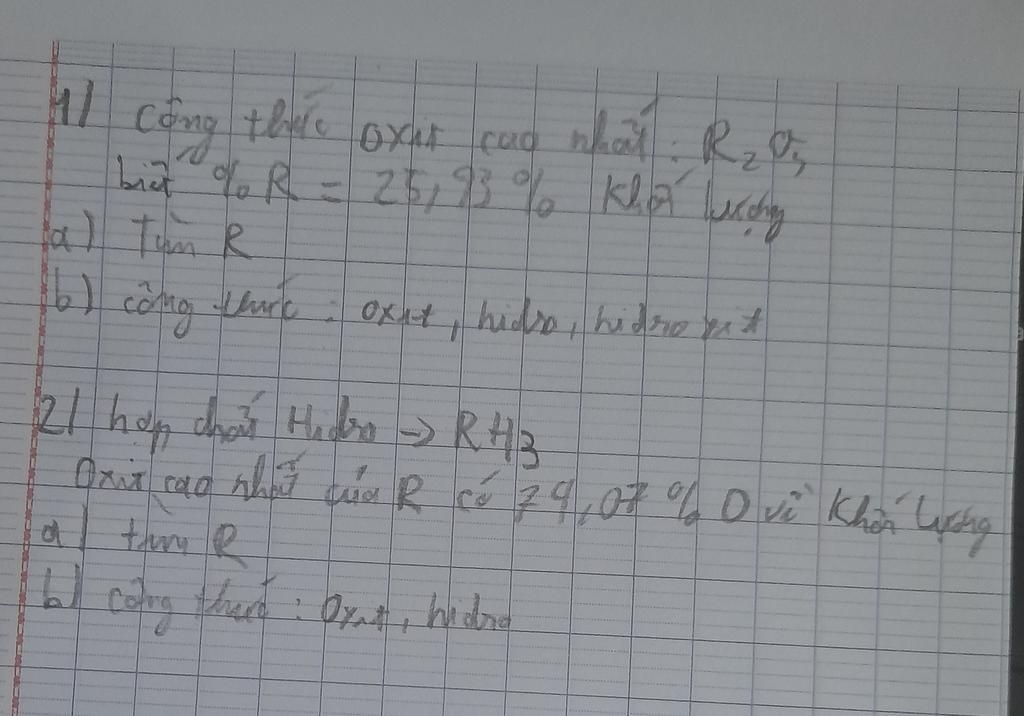 1) Công thức oxit cao nhất : R2O5
biết % R = 25,93 % khối lượng
a) Tìm R
b) công thức : oxit, hidro, hidroxit
2) hợp chất Hidro → RH3
Oxit cao nhất của R có 74,07 % O về khối lượng
a) tìm R
b) công thức : Oxit, hidro